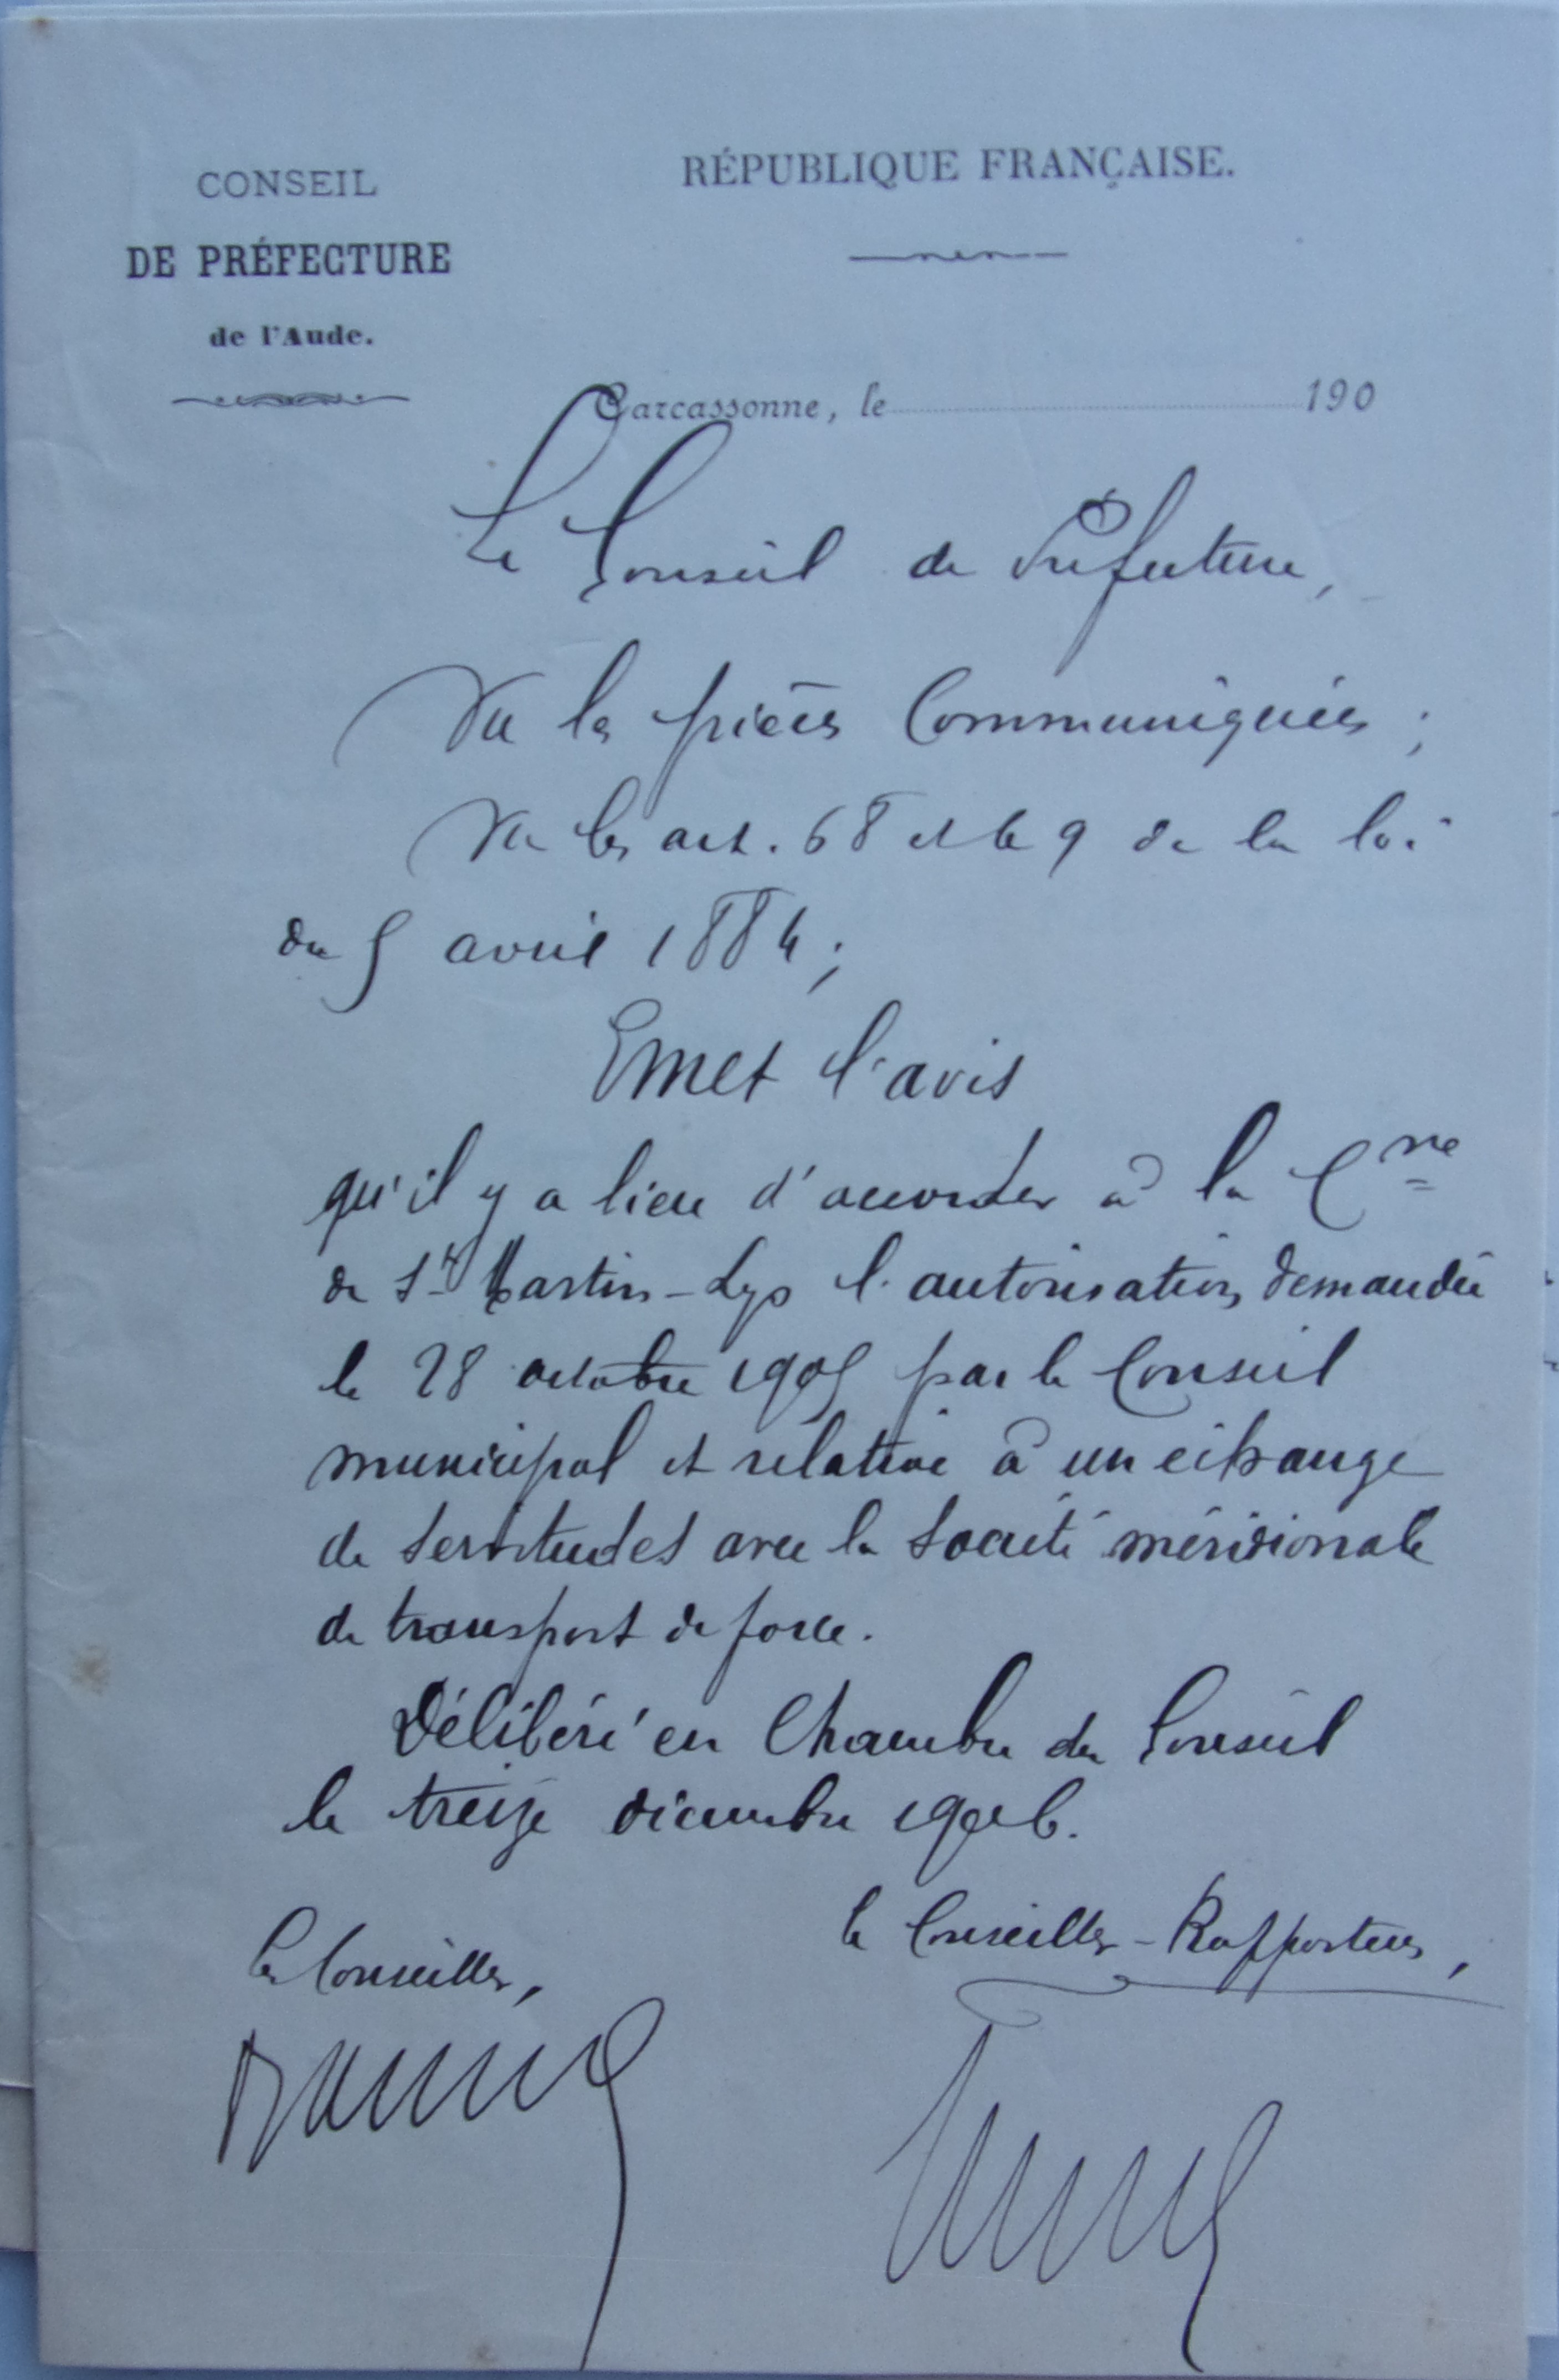 CONSEIL
DE PRÉFECTURE
de l'Aude.
RÉPUBLIQUE FRANÇAISE.
Carcassonne, le 190
Le Conseil de Préfecture,
Vu les pièces Communiquées ;
Vu les art. 68 et 69 de la loi
du 5 avril 1884 ;
Emet l'avis
qu'il y a lieu d'accorder à la Cne
de St Martin-Lys l'autorisation demandée
le 28 octobre 1905 par le Conseil
municipal et relative à un échange
de servitudes avec la Société méridionale
de transport de force.
Délibéré en Chambre du Conseil
le treize décembre 1906.
Le Conseiller-Rapporteur,
Les Conseillers,